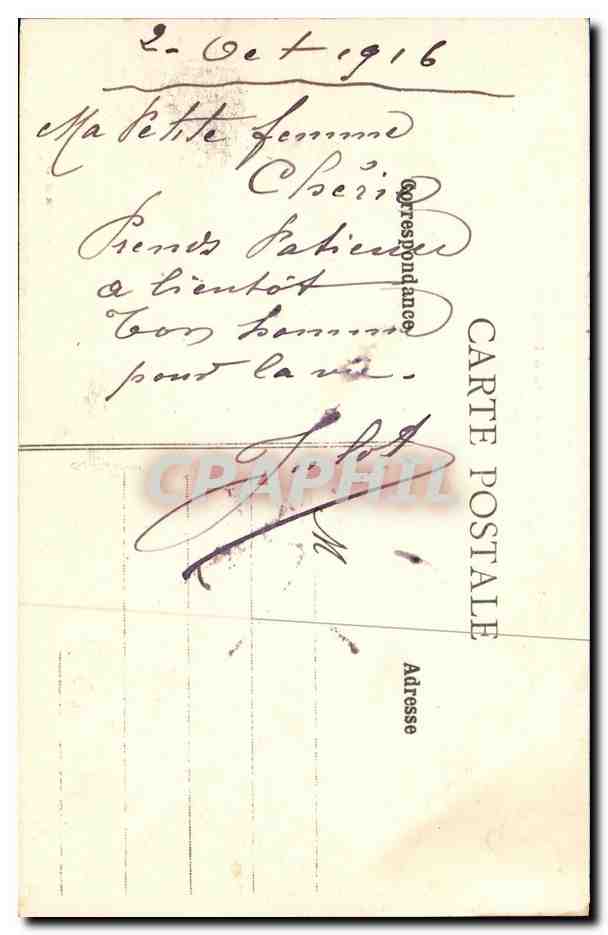 2 - Oct 1916
Ma Petite femme
Chérie
Prends Patience
a bientôt
Ton homme
pour la vie.
Julot
CARTE POSTALE
Correspondance
Adresse
CPAPHIL